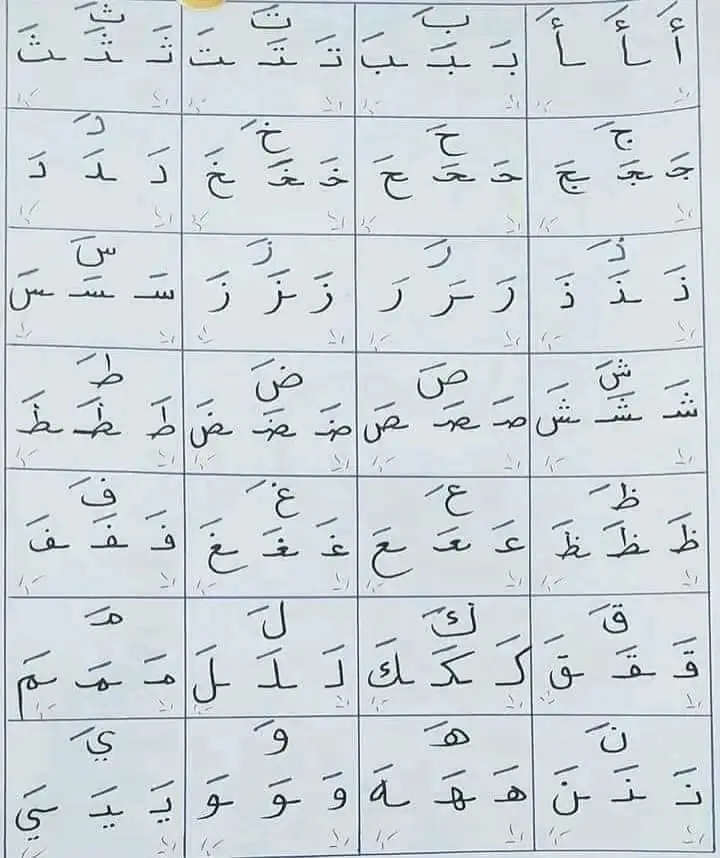 أَ بَ تَ ثَ
أَ ـأَ ـأَ بَـ ـبَـ ـبَ تَـ ـتَـ ـتَ ثَـ ـثَـ ـثَ
جَ حَ خَ دَ
جَـ ـجَـ ـجَ حَـ ـحَـ ـحَ خَـ ـخَـ ـخَ دَ ـدَ دَ
ذَ رَ زَ سَ
ذَ ـذَ ذَ رَ ـرَ رَ زَ ـزَ زَ سَـ ـسَـ ـسَ
شَ صَ ضَ طَ
شَـ ـشَـ ـشَ صَـ ـصَـ ـصَ ضَـ ـضَـ ـضَ طَـ ـطَـ ـطَ
ظَ عَ غَ فَ
ظَـ ـظَـ ـظَ عَـ ـعَـ ـعَ غَـ ـغَـ ـغَ فَـ ـفَـ ـفَ
قَ كَ لَ مَـ
قَـ ـقَـ ـقَ كَـ ـكَـ ـكَ لَـ ـلَـ ـلَ مَـ ـمَـ ـمَ
نَ هَـ وَ يَ
نَـ ـنَـ ـنَ هَـ ـهَـ ـهَ وَ ـوَ ـوَ يَـ ـيَـ ـيَ